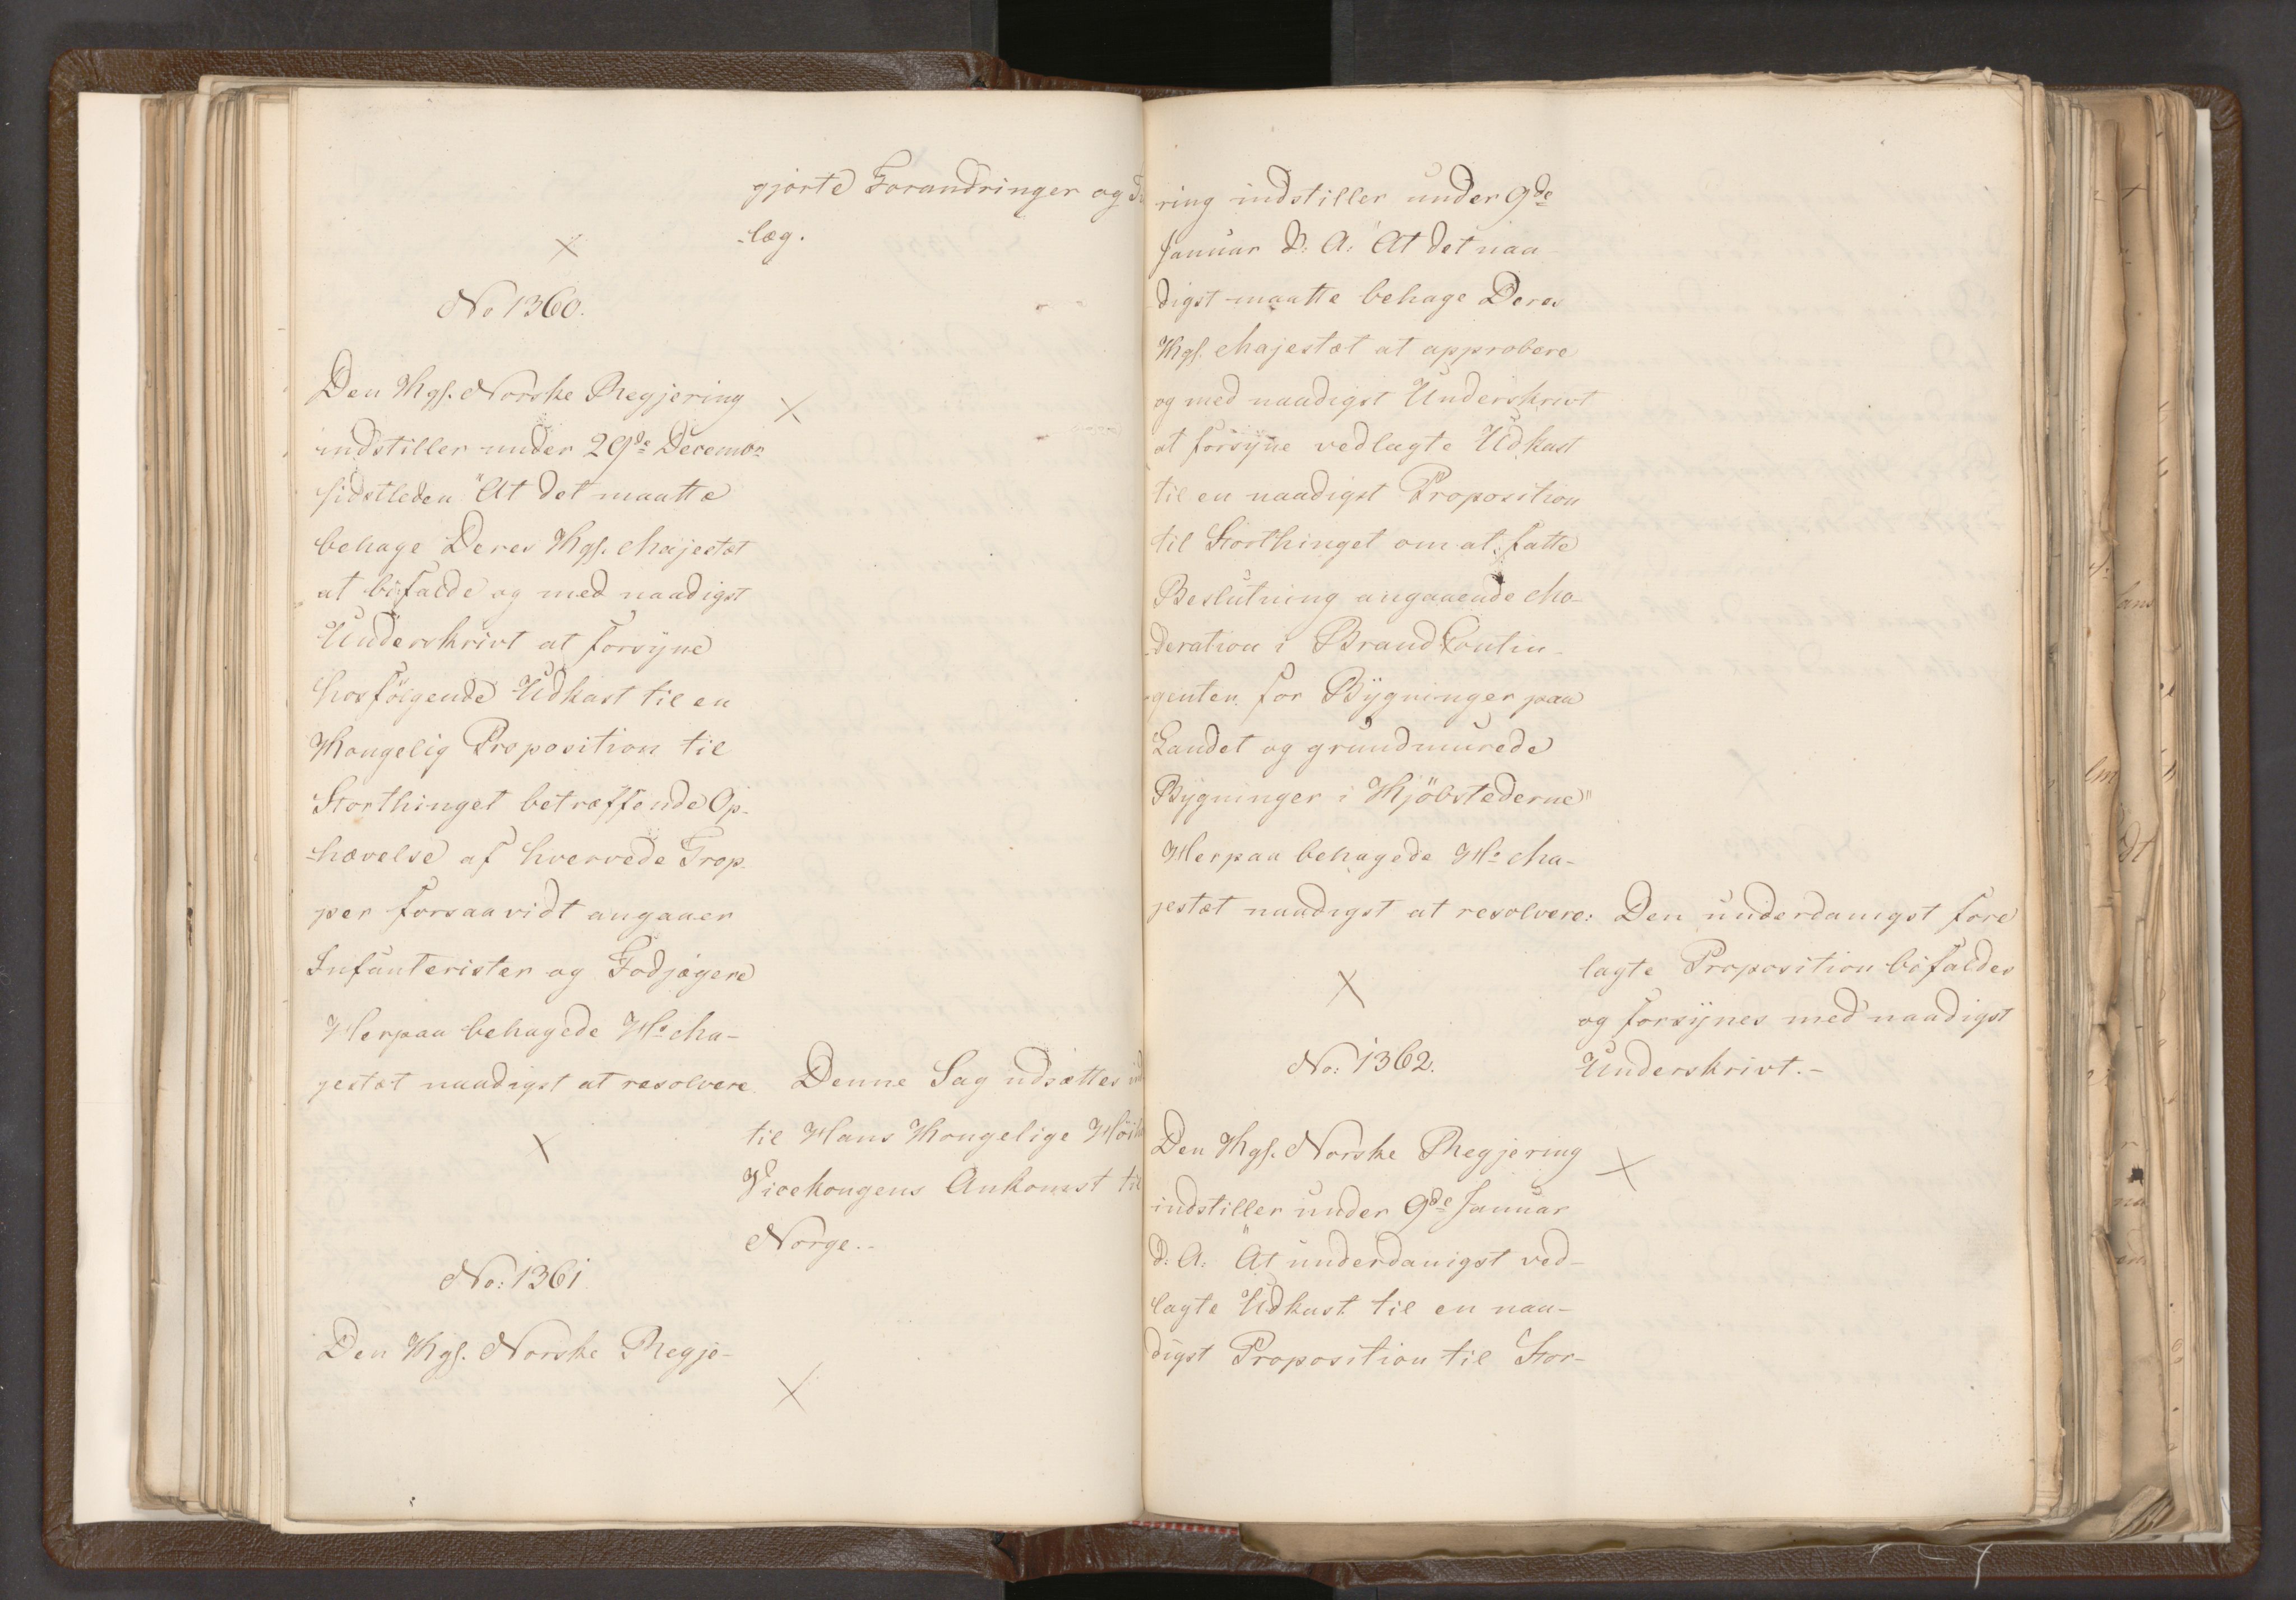 gjorte Forandringer og
-læg.
No 1360.
Den Kgl. Norske Regjering
indstiller under 29de Decembr
sidstleden "At det maatte
behage Deres Kgl. Majestæt
at bifalde og med naadigst
Underskrivt at forsÿne
hosfölgende Udkast til en
Kongelig Proposition til
Storthinget betræffende Op-
-hævelse af hvervede Trop-
per forsaavidt angaaer
Infanterister og Fodjægere
Herpaa behagede Hs Ma-
jestæt naadigst at resolvere
Denne Sag udsættes ind
til Hans Kongelige Höi
Vicekongens Ankomst til
Norge.-
No: 1361
Den Kgl. Norske Regje-
ring indstiller under 9de
Januar d: A: "At det naa
digst maatte behage Deres
Kgl. Majestæt at approbere
og med naadigst Underskrivt
at forsÿne vedlagte Udkast
til en naadigst Proposition
til Storthinget om at fatte
Beslutning angaaende Mo-
-deration i Brand Contin-
-genten for Bÿgninger paa
Landet og grundmurede
Bÿgninger i Kjöbstederne"
Herpaa behagede Hs Ma-
jestæt naadigst at resolvere:
Den underdanigst fore
lagte Proposition bifaldes
og forsÿnes med naadigst
Underskrivt.-
No: 1362.
Den Kgl. Norske Regjering
indstiller under 9de Januar
d: A: "At underdanigst ved-
lagte Udkast til en naa-
digst Proposition til Stor-